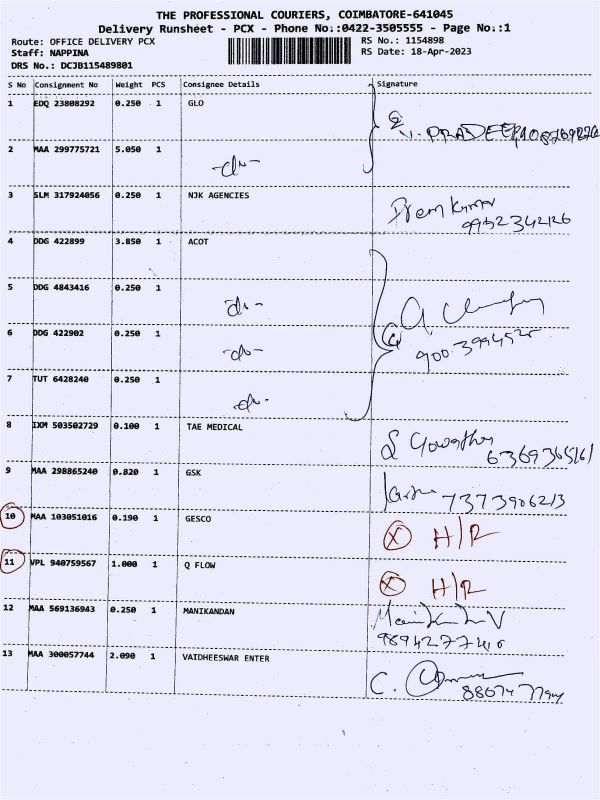 THE PROFESSIONAL COURIERS, COIMBATORE-641045
Delivery Runsheet - PCX - Phone No.:0422-3505555 - Page No.:1
Route: OFFICE DELIVERY PCX RS No.: 1154898
Staff: NAPPINA RS Date: 18-Apr-2023
DRS No.: DCJB115489801
S No Consignment No Weight PCS Consignee Details Signature
1 EDQ 23808292 0.250 1 GLO
V. PRADEEP
2 MAA 299775721 5.050 1
-do-
3 SLM 317924056 0.250 1 NJK AGENCIES
Prem Kumar
9952342126
4 DDG 422899 3.850 1 ACOT
5 DDG 4843416 0.250 1
-do-
6 DDG 422902 0.250 1
-do-
7 TUT 6428240 0.250 1
-do-
8 IXM 503502729 0.100 1 TAE MEDICAL
6369365161
9 MAA 298865240 0.820 1 GSK
7373906213
10 MAA 103051016 0.190 1 GESCO
X H/R
11 VPL 940759567 1.000 1 Q FLOW
X H/R
12 MAA 569136943 0.250 1 MANIKANDAN
13 MAA 300057744 2.090 1 VAIDHEESWAR ENTER
C.